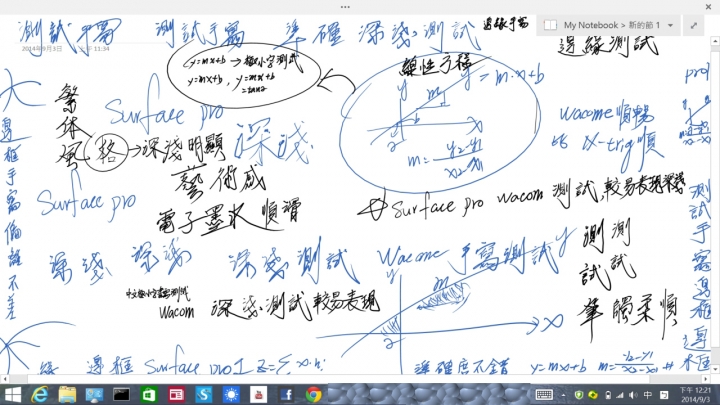 My Notebook > 新的節 1
測試手寫 測試手寫 準確 深淺測試 邊緣手寫
2014年9月3日 上午 11:34
邊緣測試
y=mx+b → 極小字測試
y=mx+b, y=mx+b
線性方程
y=m·x+b
繁体風格→深淺明顯
Surface pro
深淺
m= y2-y1
x2-x1
pro1
Wacome 順暢
比 N-trig 順
藝術感
Surface pro
電子墨水 順滑
Surface pro wacom 測試,較易表現深淺
邊框手寫偏離不差
測試手寫邊框
深淺 深淺 深淺測試 Wacome 手寫測試
測測
試試
筆觸柔順
Wacom 深淺測試較易表現
y
m
x
邊框 Surface pro1
準確度不錯 y=mx+b
下午 12:21
2014/9/3